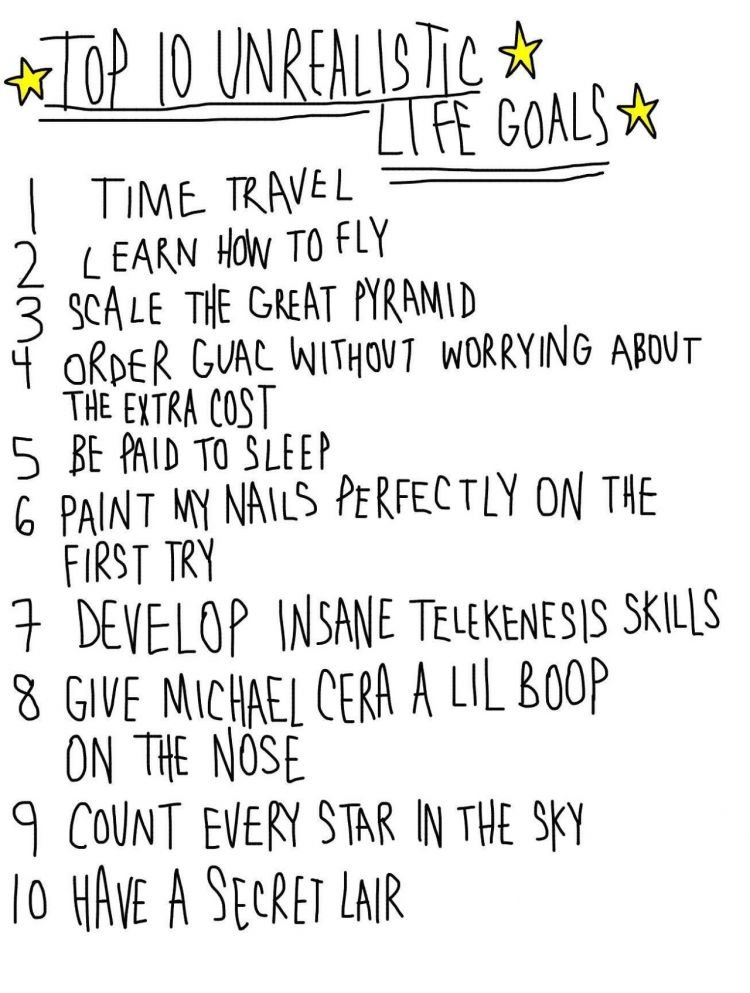 TOP 10 UNREALISTIC
LIFE GOALS
1 TIME TRAVEL
2 LEARN HOW TO FLY
3 SCALE THE GREAT PYRAMID
4 ORDER GUAC WITHOUT WORRYING ABOUT
THE EXTRA COST
5 BE PAID TO SLEEP
6 PAINT MY NAILS PERFECTLY ON THE
FIRST TRY
7 DEVELOP INSANE TELEKENESIS SKILLS
8 GIVE MICHAEL CERA A LIL BOOP
ON THE NOSE
9 COUNT EVERY STAR IN THE SKY
10 HAVE A SECRET LAIR